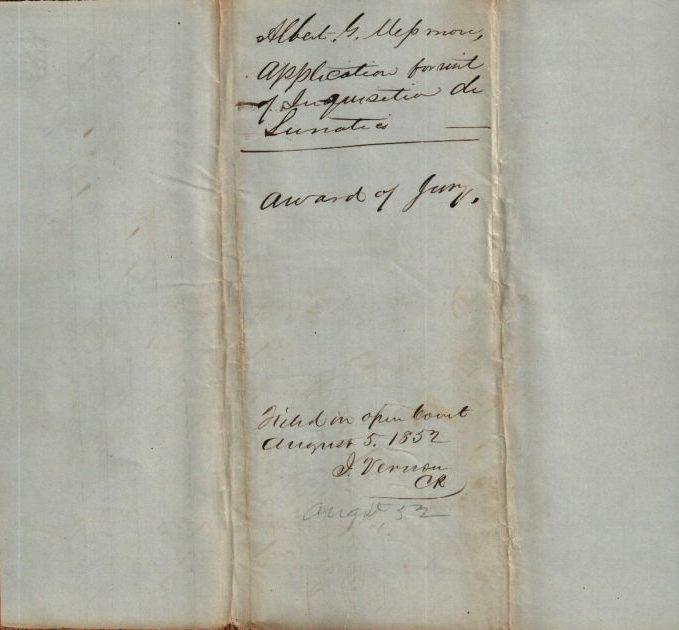 Albert. G. Messmore,
Application for writ
of Inquisition de
Lunatics
Award of Jury.
Filed in open Court
August 5. 1852
J. Vernon
Clk
Augst, 52